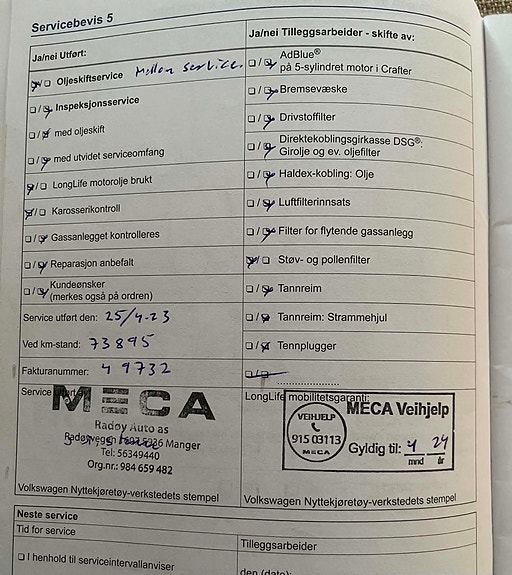 Servicebevis 5
Ja/nei Utført:
☒/☐ Oljeskiftservice Mellom service.
☐/☒ Inspeksjonsservice
☐/☒ med oljeskift
☐/☒ med utvidet serviceomfang
☒/☐ LongLife motorolje brukt
☒/☐ Karosserikontroll
☐/☒ Gassanlegget kontrolleres
☐/☒ Reparasjon anbefalt
☐/☒ Kundeønsker
(merkes også på ordren)
Service utført den: 25/4-23
Ved km-stand: 73895
Fakturanummer: 49732
Service utført av:
MECA
Radøy Auto as
Radøyvegen 5936 Manger
Tel: 56349440
Org.nr.: 984 659 482
Volkswagen Nyttekjøretøy-verkstedets stempel
Ja/nei Tilleggsarbeider - skifte av:
☐/☒ AdBlue®
på 5-sylindret motor i Crafter
☐/☒ Bremsevæske
☐/☒ Drivstoffilter
☐/☒ Direktekoblingsgirkasse DSG®:
Girolje og ev. oljefilter
☐/☒ Haldex-kobling: Olje
☐/☒ Luftfilterinnsats
☐/☒ Filter for flytende gassanlegg
☒/☐ Støv- og pollenfilter
☐/☒ Tannreim
☐/☒ Tannreim: Strammehjul
☐/☒ Tennplugger
☐/☐ ....................
LongLife mobilitetsgaranti:
VEIHJELP
915 03113
MECA
MECA Veihjelp
Gyldig til: 4 24
mnd år
Volkswagen Nyttekjøretøy-verkstedets stempel
Neste service
Tid for service
☐ I henhold til serviceintervallanviser
Tilleggsarbeider
den (dato):